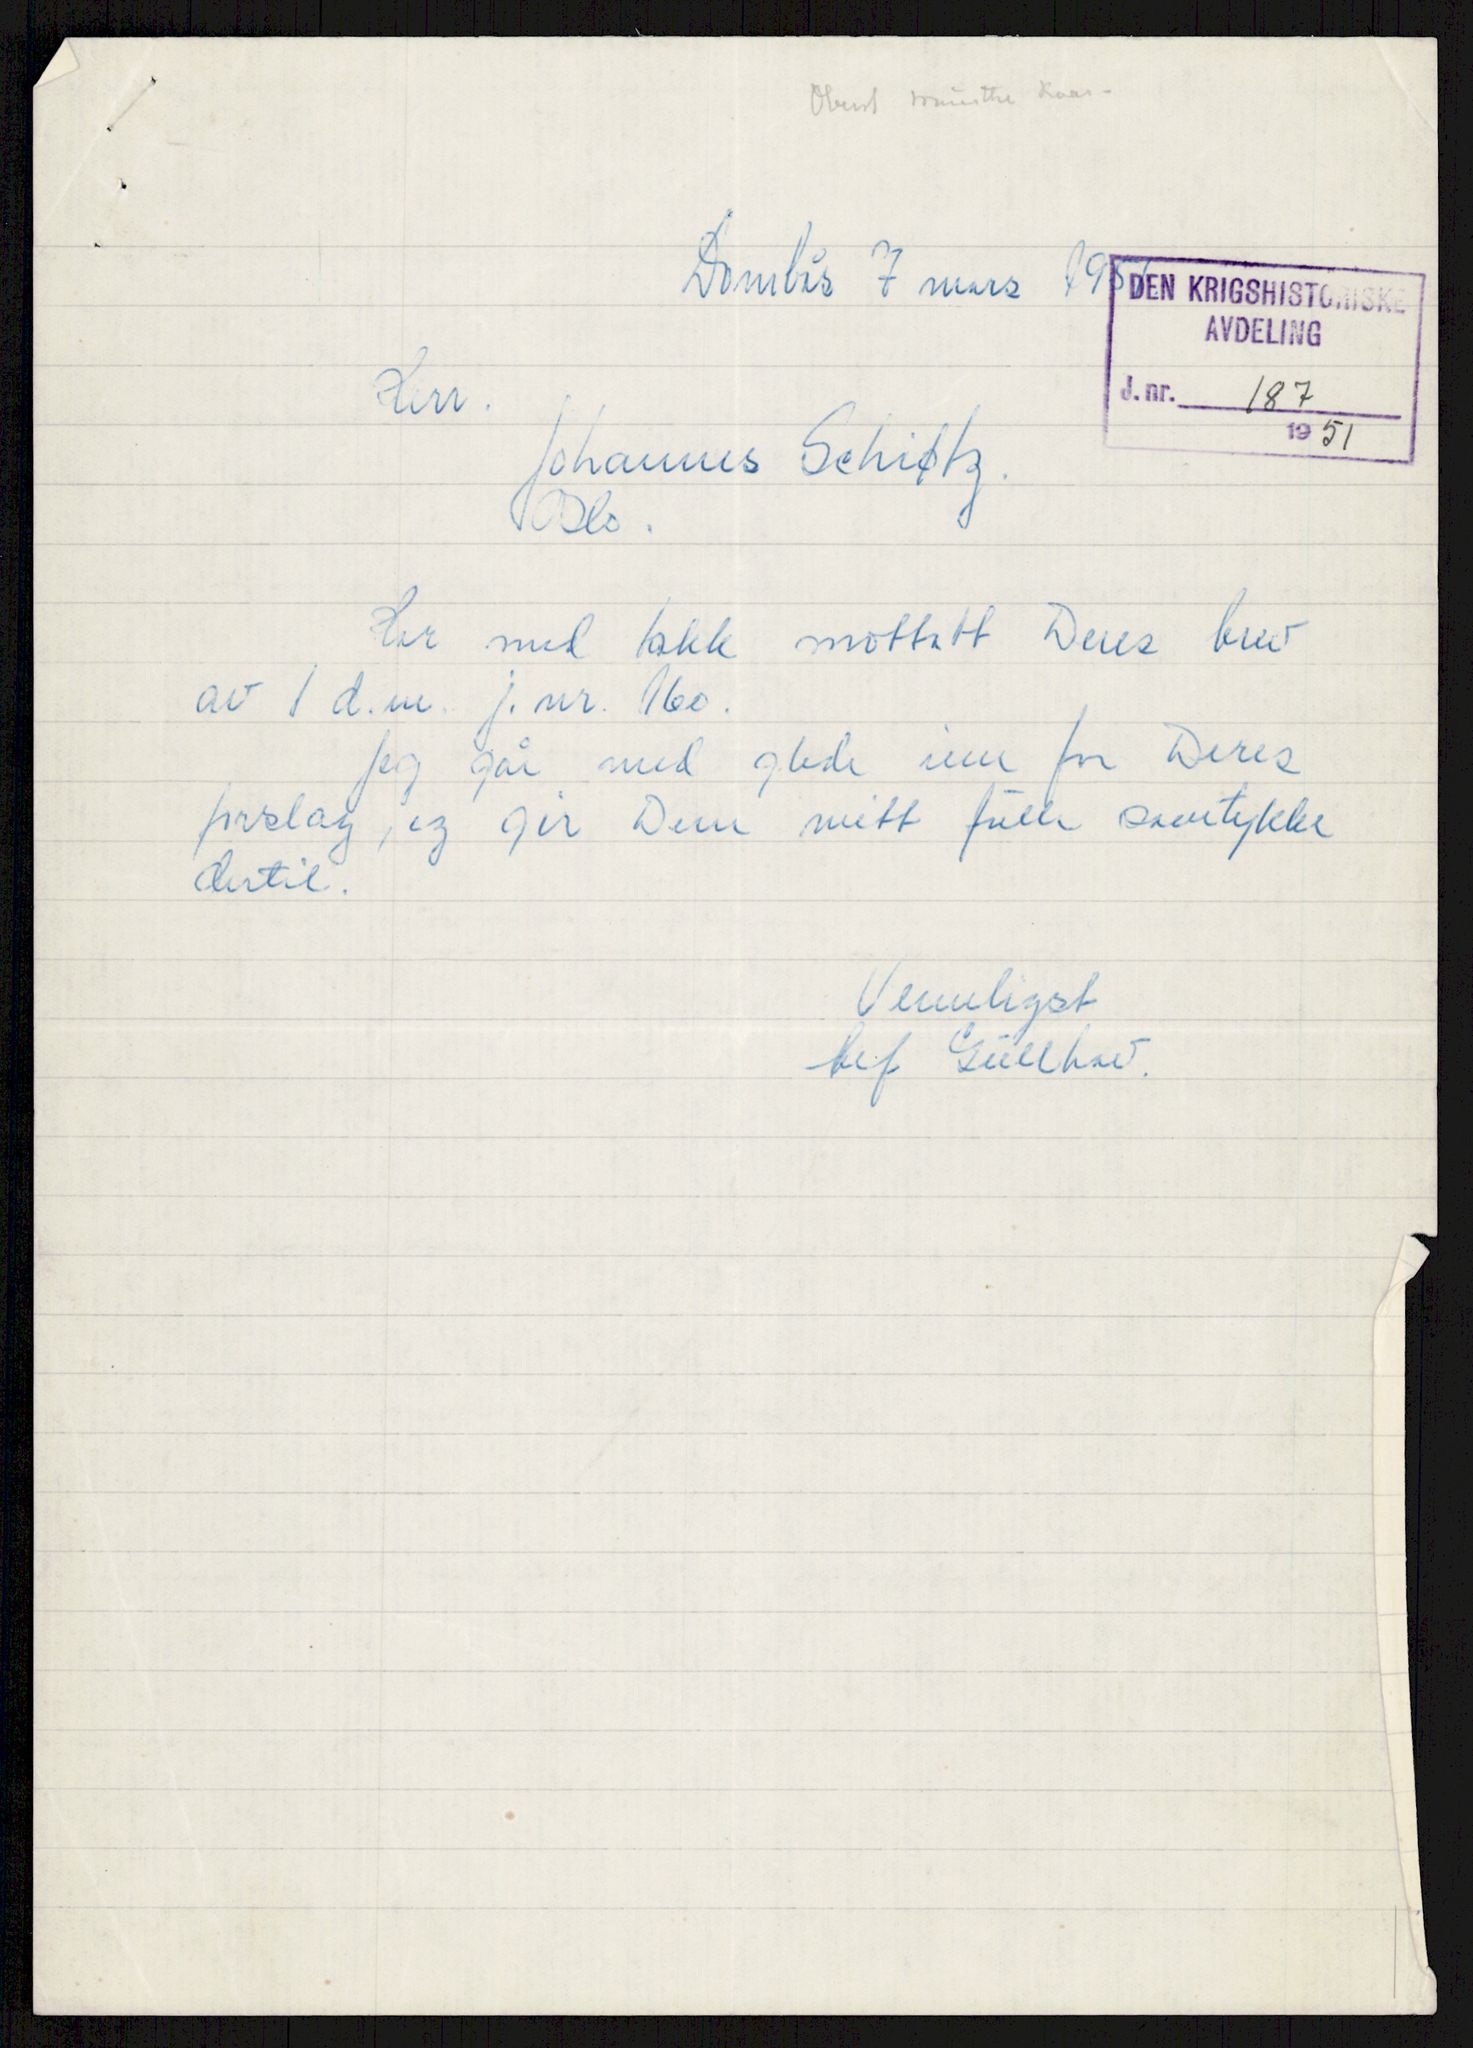 Oberst Munthe Kaas -
Dombås 7 mars 1951
DEN KRIGSHISTORISKE
AVDELING
J. nr. 187
1951
Herr.
Johannes Schiøtz.
Oslo.
Har med takk mottatt Deres brev
av 1 d.m. j. nr. 160.
Jeg går med glede inn for Deres
forslag, og gir Dem mitt fulle samtykke
dertil.
Vennligst
Leif Gullhav.